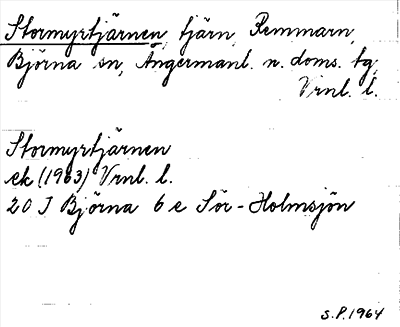 Stormyrtjärnen, tjärn, Remmarn,
Björna sn, Ångermanl. n. doms. tg,
Vrnl. l.
Stormyrtjärnen
ek (1963) Vrnl. l.
20 J Björna 6 e Sör-Holmsjön
S.P. 1964